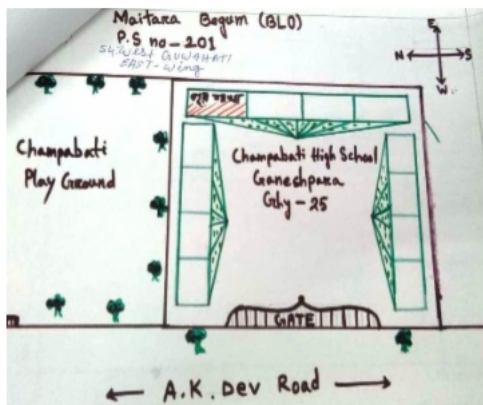 Maitara Begum (BLO)
P.S no - 201
54 WEST GUWAHATI
EAST - Wing
E
N S
W
Champabati
Play Ground
Champabati High School
Ganeshpara
Ghy - 25
GATE
A.K. Dev Road